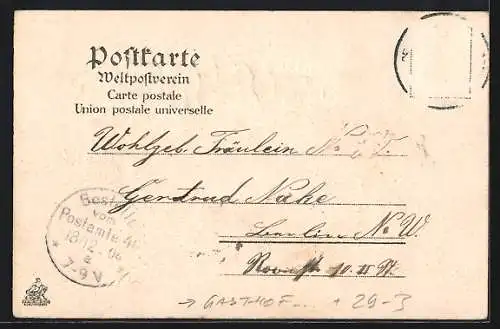 Postkarte
Weltpostverein
Carte postale
Union postale universelle
Wohlgeb. Fräulein
Gertrud Nahe
Berlin N. W.
10. II
Bestellt
vom
Postamte 4
18/12 06
7-9 V
→ GASTHOF 29-3